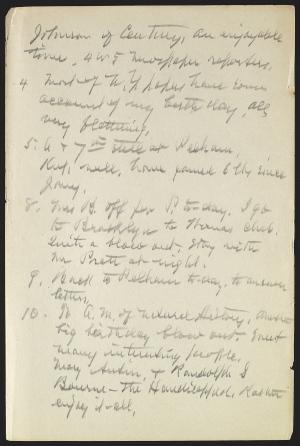 Johnson of Century, an enjoyable
time, 4 or 5 newspaper reporters.
4 Most of N.Y. papers have some
account of my birthday, all
very flattering.
5. 6 & 7th Still at Pelham,
well, have gained 6 lbs since
Jany.
8. Mrs B. off for P. to-day. I go
to Brooklyn to Thomas Club.
Quite a blow out, stay with
Mr Pratt at night.
9. Back to Pelham to-day, to answer
letters.
10. To A.M. of natural History, another
big birthday blow out. Meet
many interesting people,
Mary Austin, & Randolph S
Bourne – the Handicapped. Rather
enjoy it all.